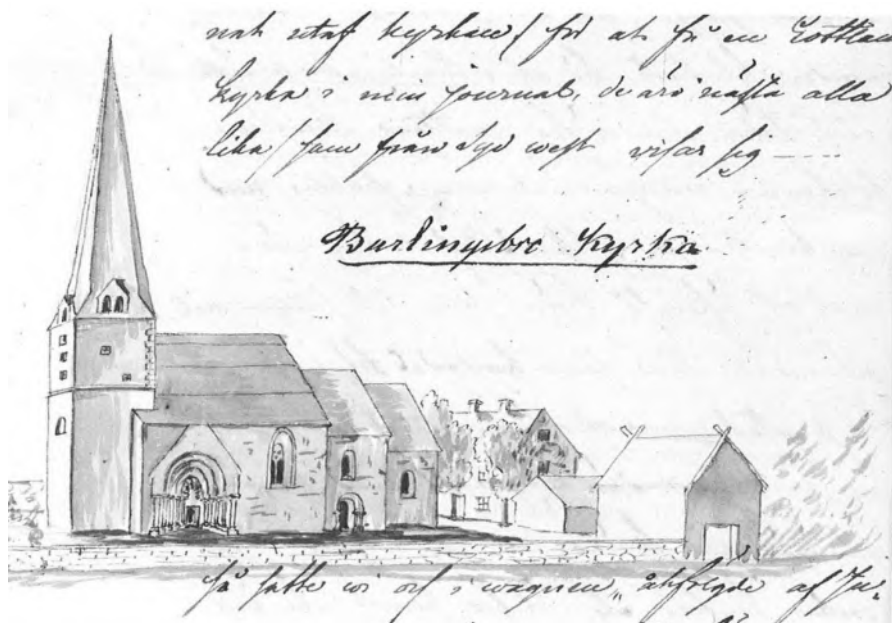 nah utaf kyrkan / för at få en Gottlan
kyrka i min journal, de äro nästa alla
lika / som från Syd west visar sig ----
Burlingebro Kyrka
så satte wi oss i wagnen, åtfölgde af Ju,